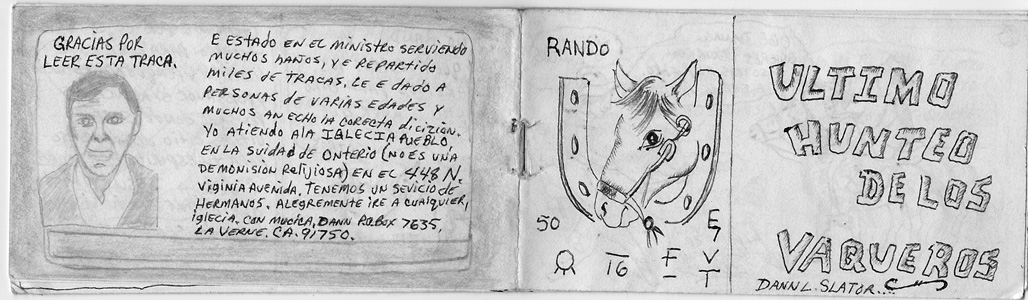 GRACIAS POR
LEER ESTA TRACA.
E ESTADO EN EL MINISTRO SERVIENDO
MUCHOS HAÑOS, Y E REPARTIDO
MILES DE TRACAS. LE E DADO A
PERSONAS DE VARIAS EDADES Y
MUCHOS AN ECHO LA CORECTA DICIZION.
YO ATIENDO ALA IGLECIA PUEBLO,
EN LA SUIDAD DE ONTERIO (NO ES UNA
DEMONISION RELIJIOSA) EN EL 448 N.
VIRGINIA AVENIDA. TENEMOS UN SEVICIO DE
HERMANOS. ALEGREMENTE IRE A CUALQUIER,
IGLECIA. CON MUCICA, DANN P.O.BOX 7635,
LA VERNE, CA. 91750.
RANDO
50
16
F
E
V
T
ULTIMO
HUNTEO
DE LOS
VAQUEROS
DANN L. SLATOR...